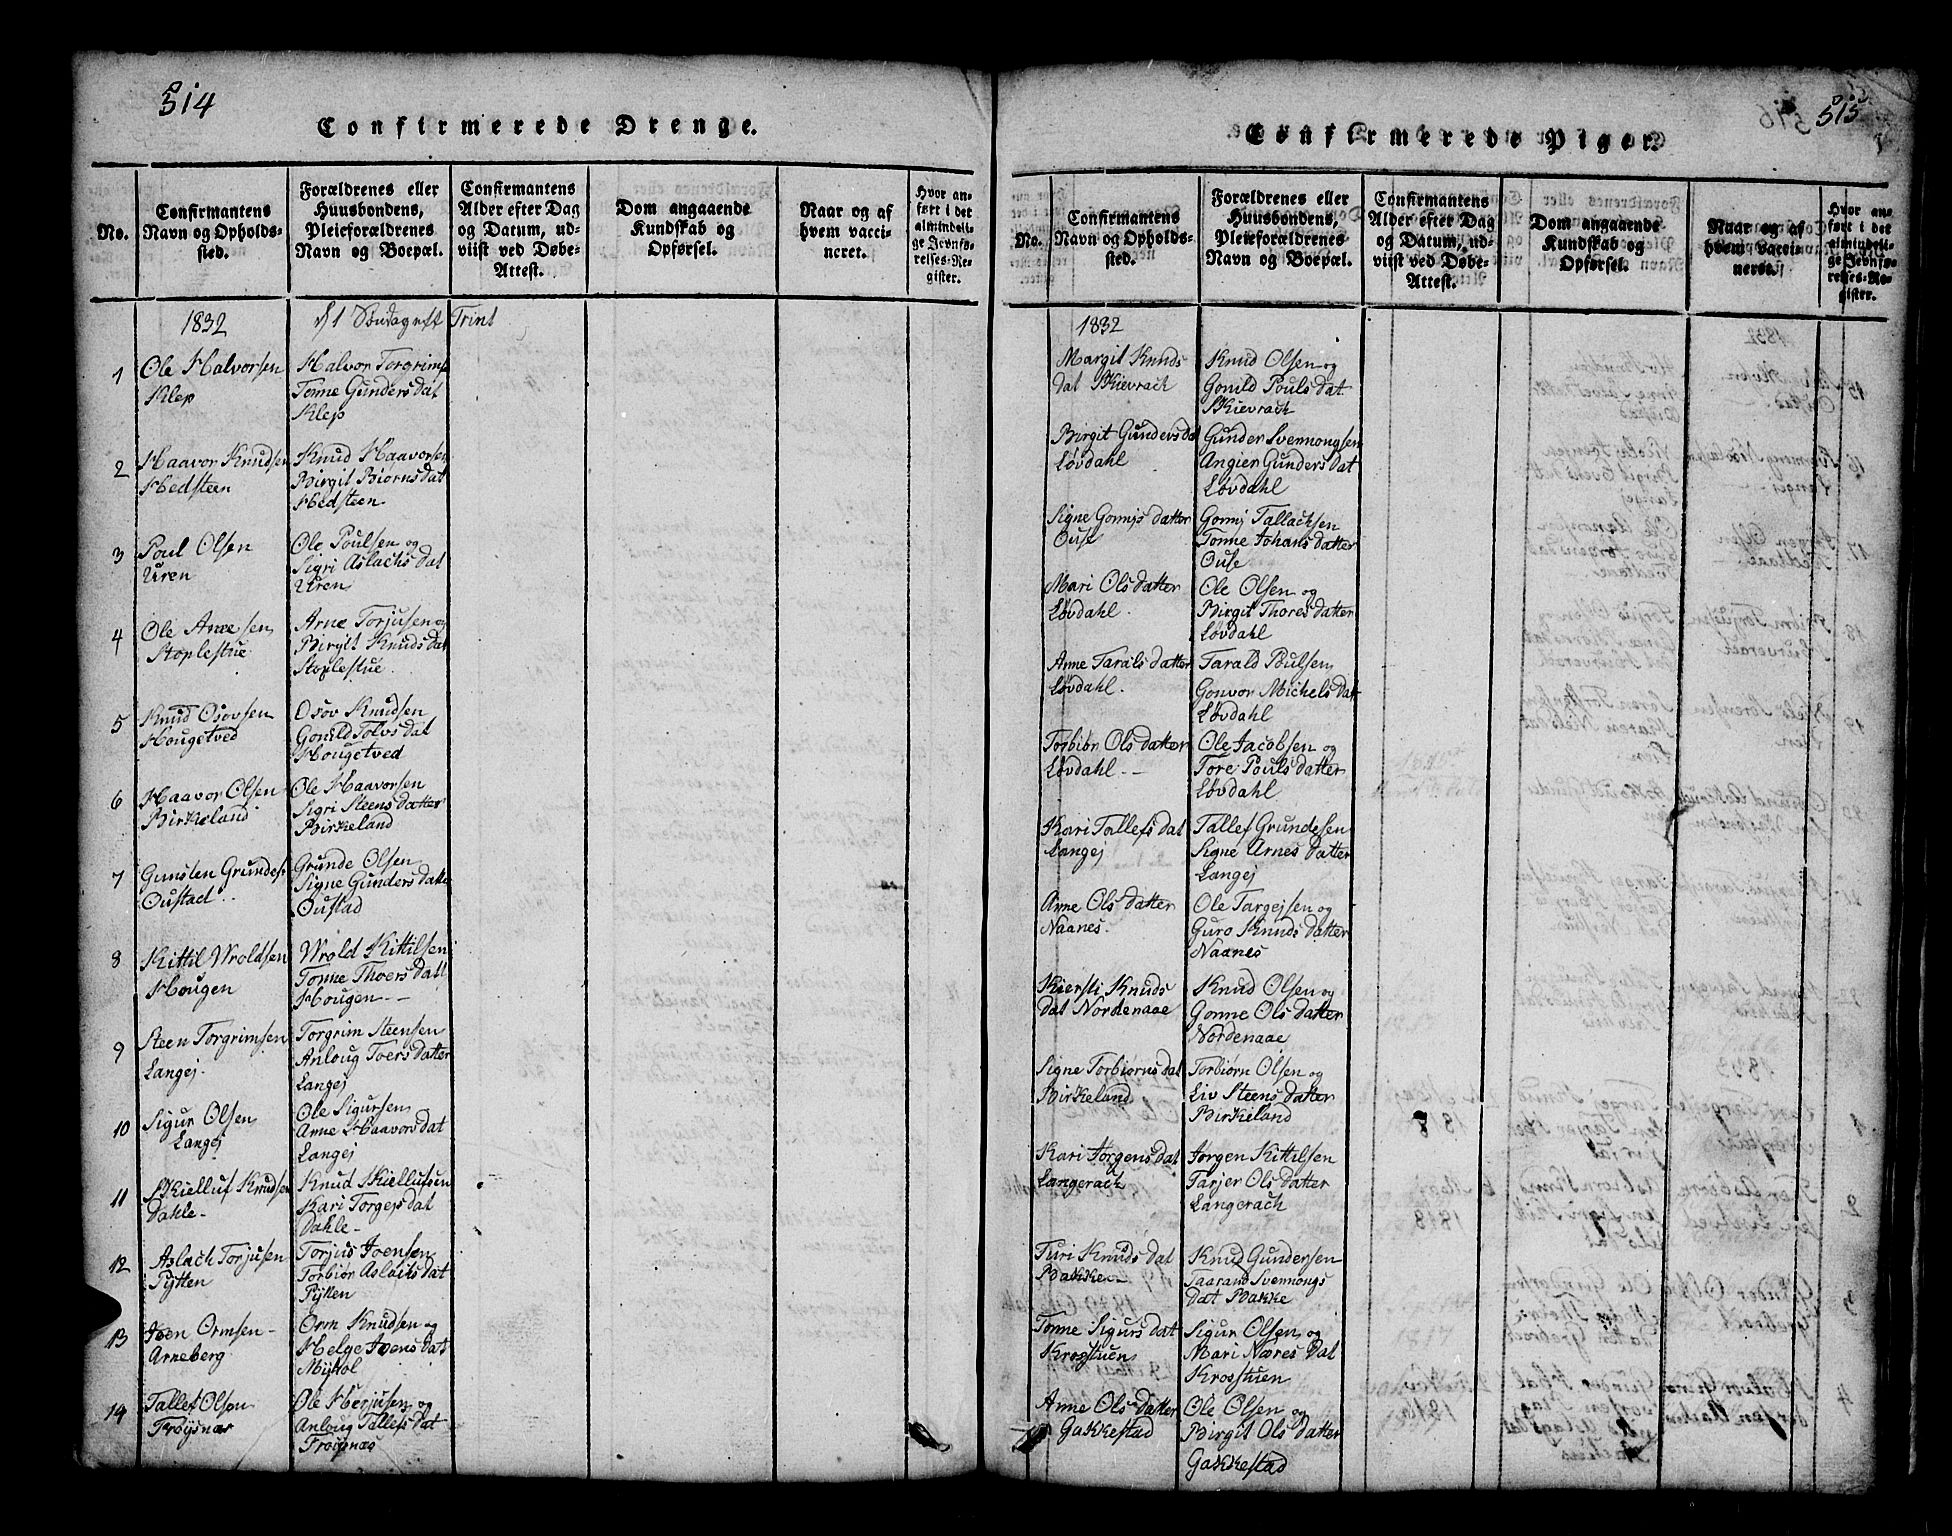 514
Confirmerede Drenge.
No.
Confirmantens
Navn og Opholds-
sted.
Forældrenes eller
Huusbondens,
Pleieforældrenes
Navn og Boepæl.
Confirmantens
Alder efter Dag
og Datum, ud-
viist ved Døbe-
Attest.
Dom angaaende
Kundskab og
Opførsel.
Naar og af
hvem vacci-
neret.
Hvor an-
ført i det
almindeli-
ge Jevnfø-
relses-Re-
gister.
1832
1 Søndag eft Trint
1
Ole Halvorsen
Klep
Halvor Torgrims
Tonne Gunders dat
Klep
2
Haavor Knudsen
Hedsteen
Knud Haavorsen
Birgit Biørns dat
Hedsteen
3
Poul Olsen
Uren
Ole Poulsen og
Sigri Aslachs dat
Uren
4
Ole Arnesen
Stoplestue
Arne Torjusen og
Birgit Knuds dat
Stoplestue
5
Knud Osovsen
Hougetved
Osov Knudsen
Gonild Tolvs dat
Hougetved
6
Haavor Olsen
Birkeland
Ole Haavorsen
Sigri Steens datter
Birkeland
7
Gunsten Grundes
Oustad
Grunde Olsen
Signe Gunders datte
Oustad
8
Kittil Wroldsen
Hougen
Wrold Kittilsen
Tonne Thoers datt
Hougen
9
Steen Torgrimsen
Langej
Torgrim Steensen
Anloug Toers datter
Langej
10
Sigur Olsen
Langej
Ole Sigursen
Anne Haavors dat
Langej
11
Skielluf Knudsen
Dahle
Knud Skiellufsen
Kari Torgejs dat
Dahle
12
Aslach Torjusen
Pytten
Torjus Joensen
Torbiør Aslaks dat
Pytten
13
Joen Ormsen
Arneberg
Orm Knudsen og
Helge Joens dat
Mykol
14
Tallef Olsen
Frøysnæs
Ole Herjusen og
Anloug Tallefs dat
Frøysnæs
515
Confirmerede Piger.
No.
Confirmantens
Navn og Opholds-
sted.
Forældrenes eller
Huusbondens,
Pleieforældrenes
Navn og Boepæl.
Confirmantens
Alder efter Dag
og Datum, ud-
viist ved Døbe-
Attest.
Dom angaaende
Kundskab og
Opførsel.
Naar og af
hvem vacci-
neret.
Hvor an-
ført i det
almindeli-
ge Jevnfø-
relses-Re-
gister.
1832
Margit Knuds
dat Skievrach
Knud Olsen og
Gonild Pouls dat
Skievrach
Birgit Gunders dat
Løvdahl
Gunder Svennongsen
Angier Gunders dat
Løvdahl
Signe Gonnjs datter
Ouse
Gonnj Tallachsen
Tonne Johans datter
Ouse
Mari Ols datter
Løvdahl.
Ole Olsen og
Birgit Thores datter
Løvdahl
Anne Taralds datter
Løvdahl.
Tarald Poulsen
Gonvor Michels dat
Løvdahl
Torbiør Ols datter
Løvdahl
Ole Jacobsen og
Tore Pouls datter
Løvdahl
Kari Tallefs dat
Langej
Tallef Grundesen
Signe Arnes datter
Langej
Anne Ols datter
Naanes.
Ole Targejsen og
Guro Knuds datter
Naanes
Kiersti Knuds
dat Nordenaae
Knud Olsen og
Gonne Ols datter
Nordenaae
Signe Torbiørns dat
Birkeland
Torbiørn Olsen og
Liv Steens datter
Birkeland
Kari Jørgens dat
Langerach
Jørgen Kittilsen
Tarjer Ols datter
Langerach
Turi Knuds dat
Bakke
Knud Gundersen
Taarand Svennongs
dat Bakke
Tonne Sigurs dat
Krosstuen
Sigur Olsen og
Mari Næres dat
Krosstuen
Anne Ols datter
Gakkestad
Ole Olsen og
Birgit Ols datter
Gakkestad